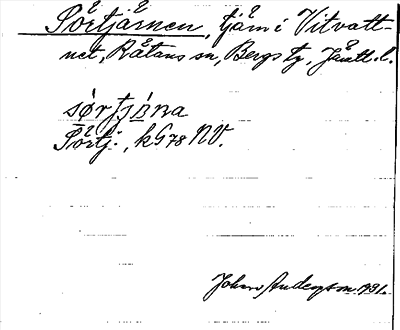 Sörtjärnen, tjärn i Vitvatt-
net, Råtans sn, Bergs tg, Jämtl. l.
sørtjɒ́na
Sörtj., k G 78 NV.
Johan Anderson 1931.